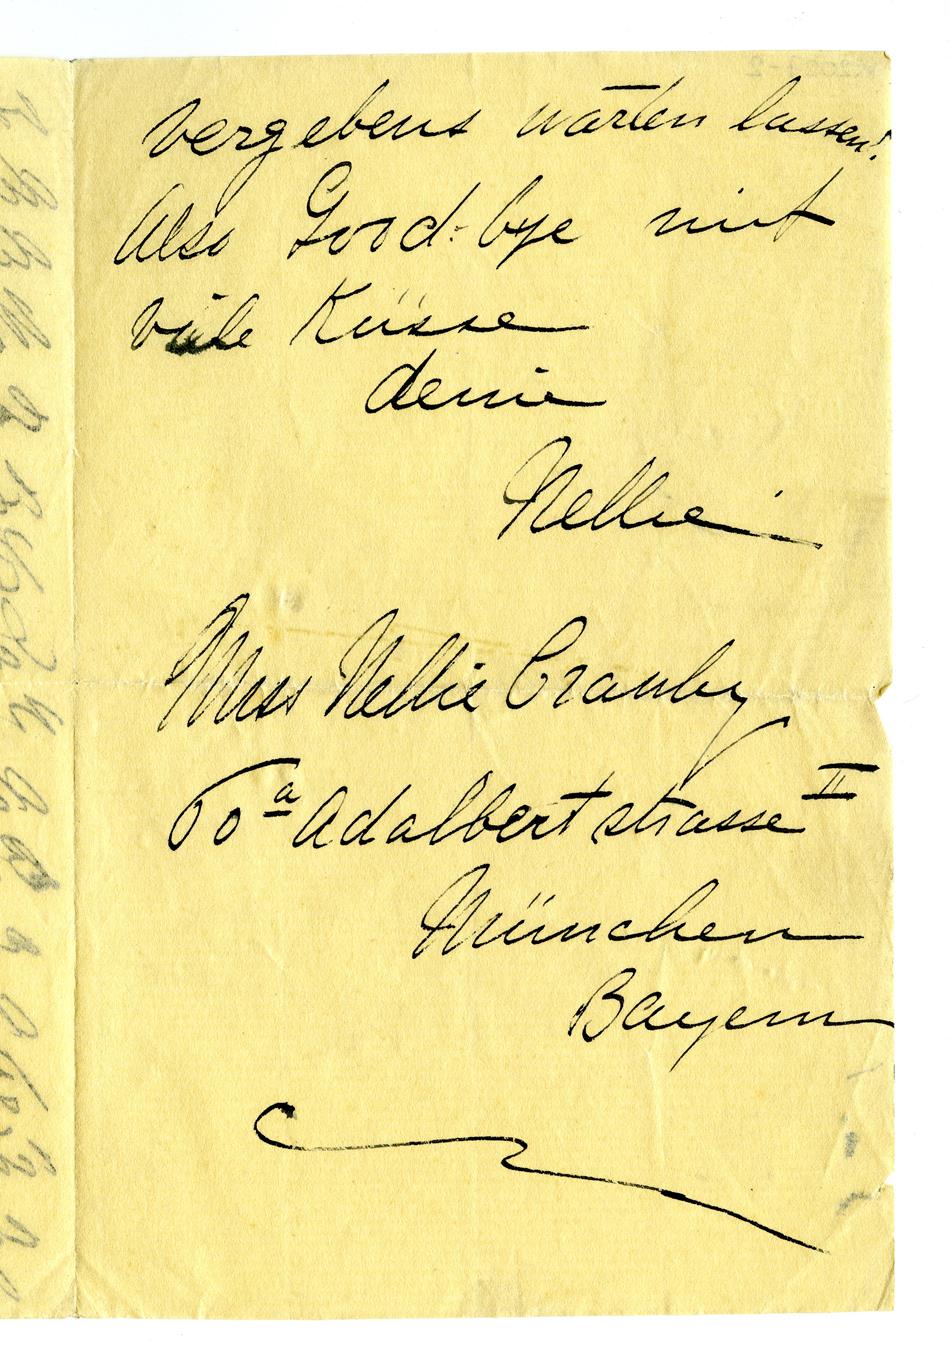 vergebens warten lassen!
Also Good-bye mit
viele Küsse
deine
Nellie
Miss Nellie
60ª Adalbertstrasse II
München
Bayern